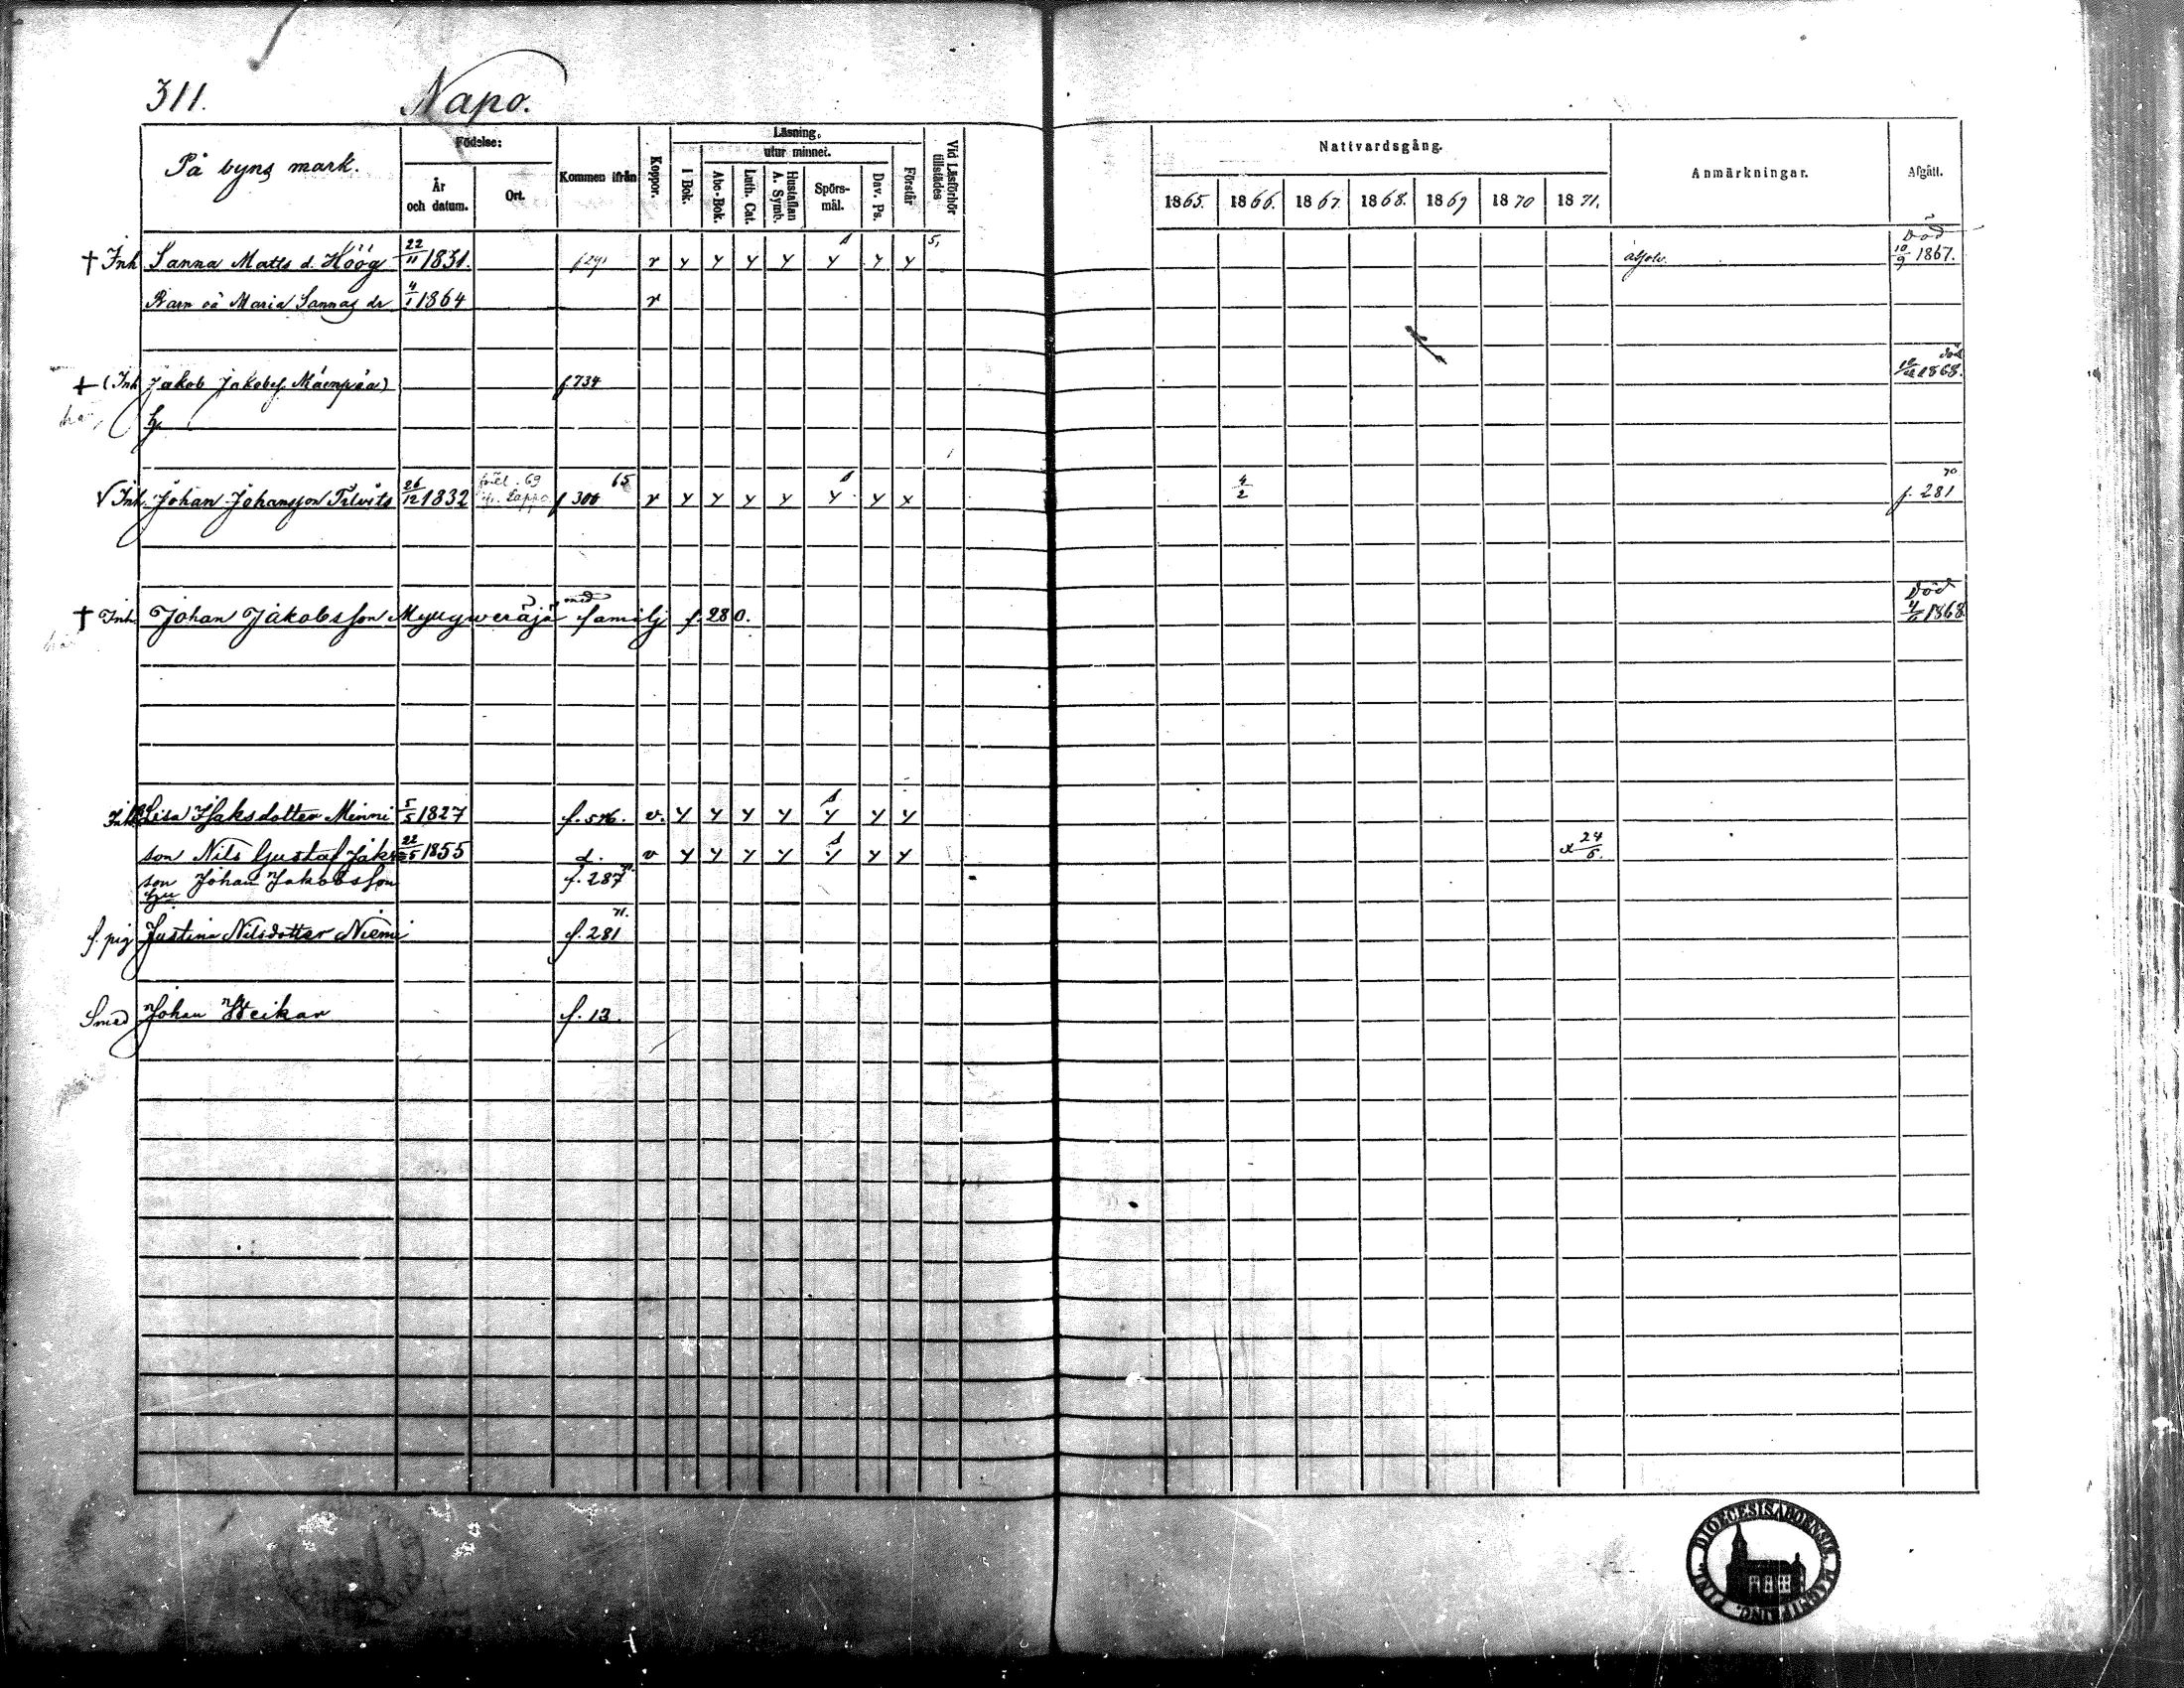 311.
Napo.
På byns mark.
Födelse:
År och datum.
Ort.
Kommen ifrån
Koppor.
Läsning.
utur minnet.
I Bok.
Abc-Bok.
Luth. Cat.
Hustaflan A. Symb.
Spörs-mål.
Dav. Ps.
Förstår
Vid Läsförhör tillstädes
Nattvardsgång.
1865. 1866. 1867. 1868. 1869 1870 1871.
Anmärkningar.
Afgått.
† Inh Sanna Matts d. Höög 22/11 1831. f291 v y y y y y y y 5, Död 10/9 1867.
Barn oä Maria Sannas dr 4/1 1864 v
† (Inh Jakob Jakobss. Mäenpää) f734 död 1868.
√ Inh. Johan Johansson Tilvits 26/12 1832 f 306 65 v y y y y y y x 4/2 f. 281 70
† Inh. Johan Jakobsson Myllyweräjä med familj f. 280. Död 1868
Inh Lisa Isaksdotter Minni 5/5 1827 f. 576. v. y y y y y y y
son Nils Gustaf Jaks 22/5 1855 d. v y y y y y y y x 24/6.
son Johan Jakobsson f. 287
Hu
f. pig Justina Nilsdotter Niemi f. 281 71.
Smed Johan Weikar f. 13.
DIOECESIS ABOENSIS MAGNI PRINC. FINL.